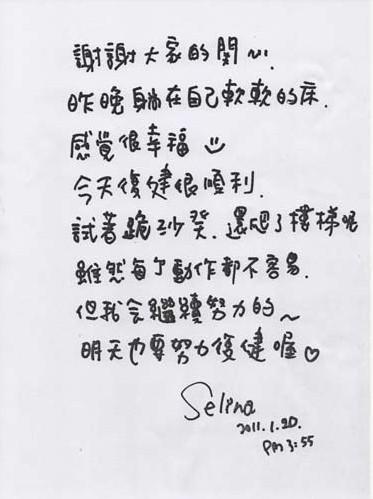 謝謝大家的関心.
昨晚躺在自己軟軟的床.
感覺很幸福
今天復健很順利.
試著跪沙發.還爬了樓梯呢
雖然每个動作都不容易.
但我会繼續努力的~
明天也要努力復健喔♡
Selina
2011.1.20.
PM 3:55